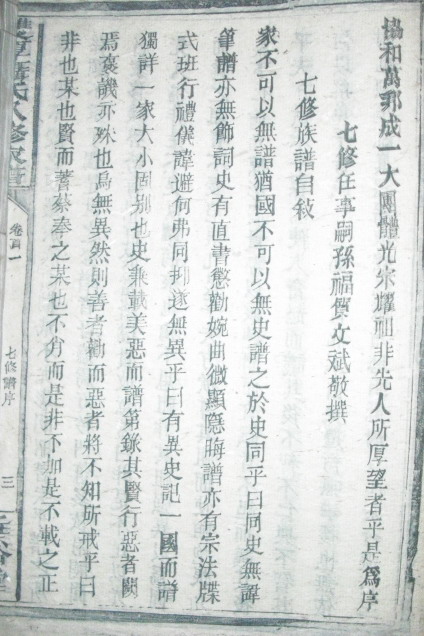 協和萬邦成一大團體光宗耀祖非先人所厚望者乎是為序
七修任事嗣孫福質文斌敬撰
七修族譜自敍
家不可以無譜猶國不可以無史譜之於史同乎曰同史無諱
筆譜亦無飾詞史有直書懲勸婉曲微顯隱晦譜亦有宗法牒
式班行禮儀諱避何弗同抑遂無異乎曰有異史記一國而譜
獨詳一家大小固別也史兼載美惡而譜第錄其賢行惡者闕
焉褒譏亦殊也烏無異然則善者勸而惡者將不知所戒乎曰
非也某也賢而蓍蔡奉之某也不肖而是非不加是不載之正
氏八修
卷首一
七修譜序
三